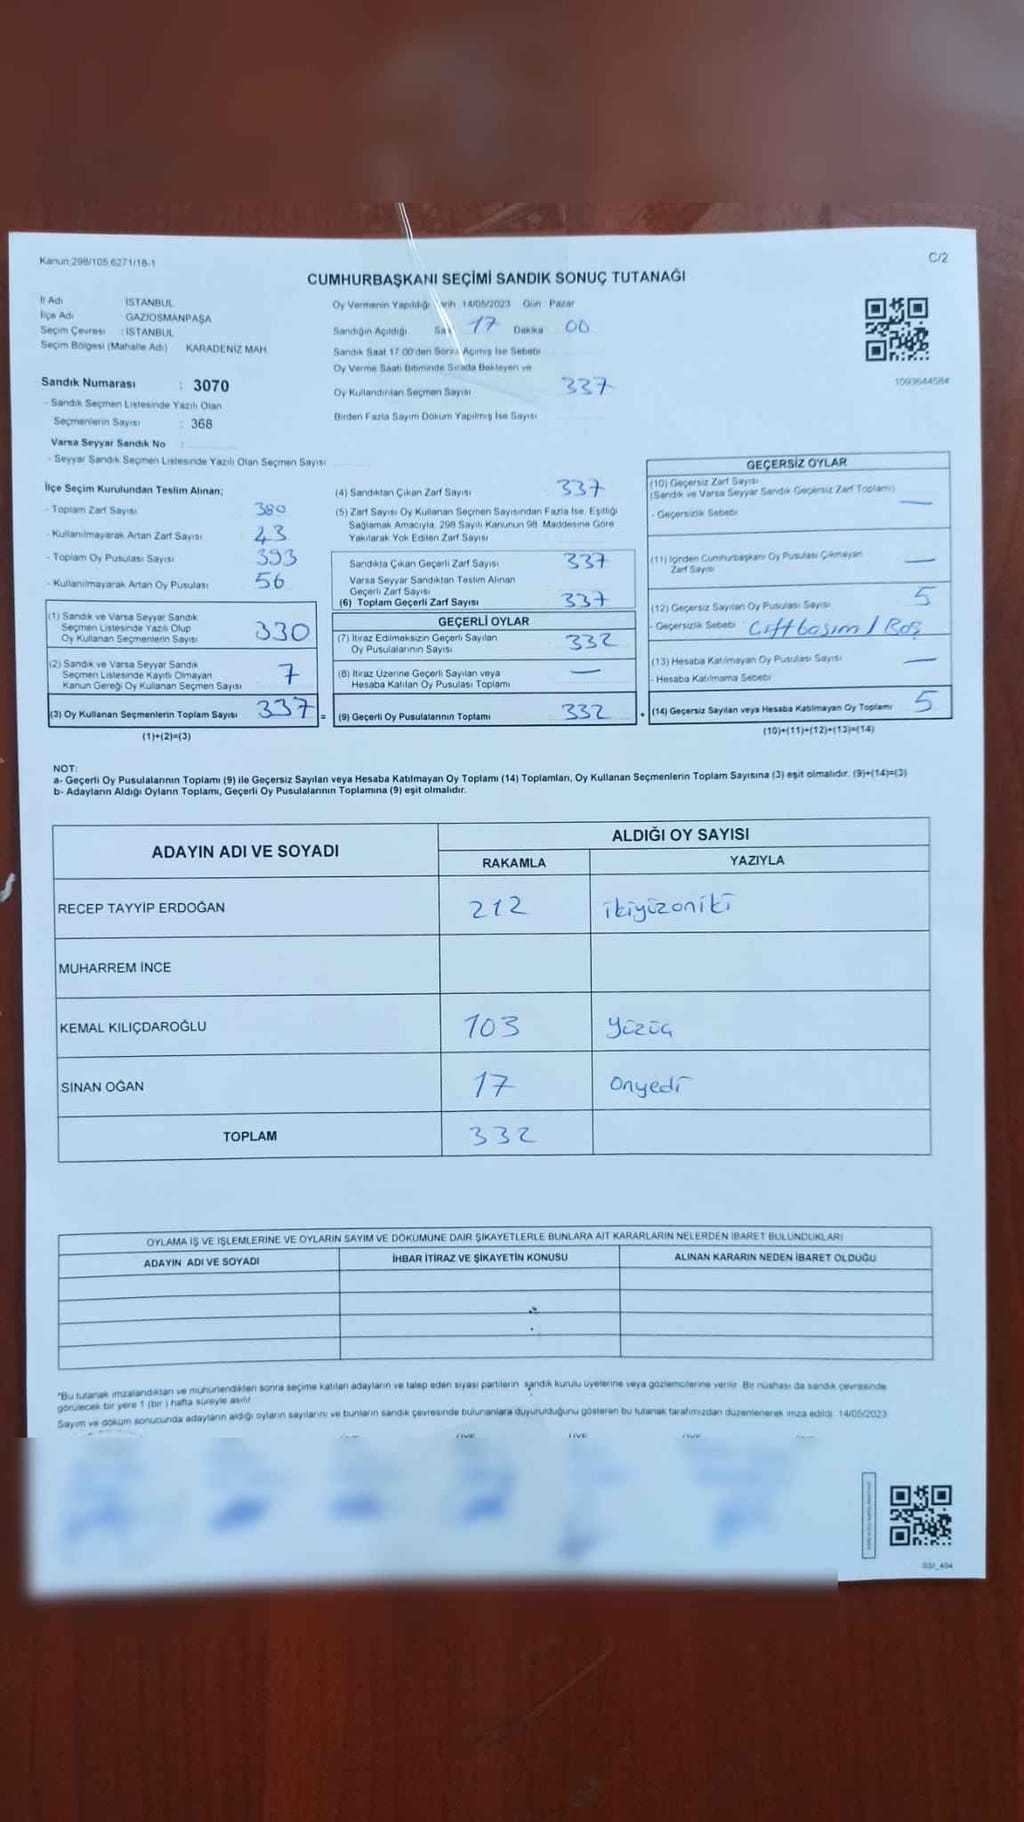 Kanun:298/105,6271/18-1
C/2
CUMHURBAŞKANI SEÇİMİ SANDIK SONUÇ TUTANAĞI
İl Adı : İSTANBUL
İlçe Adı : GAZİOSMANPAŞA
Seçim Çevresi : İSTANBUL
Seçim Bölgesi (Mahalle Adı) KARADENİZ MAH.
Oy Vermenin Yapıldığı 14/05/2023 Gün Pazar
Sandığın Açıldığı 17 Dakika 00
Sandık Saat 17:00'den Sonra Açılmış İse Sebebi
Oy Verme Saati Bitiminde Sırada Bekleyen ve
Oy Kullandırılan Seçmen Sayısı 337
Birden Fazla Sayım Döküm Yapılmış İse Sayısı
1003644584
Sandık Numarası : 3070
- Sandık Seçmen Listesinde Yazılı Olan
Seçmenlerin Sayısı : 368
Varsa Seyyar Sandık No :
- Seyyar Sandık Seçmen Listesinde Yazılı Olan Seçmen Sayısı
İlçe Seçim Kurulundan Teslim Alınan;
- Toplam Zarf Sayısı 380
- Kullanılmayarak Artan Zarf Sayısı 43
- Toplam Oy Pusulası Sayısı 393
- Kullanılmayarak Artan Oy Pusulası 56
(1) Sandık ve Varsa Seyyar Sandık
Seçmen Listesinde Yazılı Olup
Oy Kullanan Seçmenlerin Sayısı 330
(2) Sandık ve Varsa Seyyar Sandık
Seçmen Listesinde Kayıtlı Olmayan
Kanun Gereği Oy Kullanan Seçmen Sayısı 7
(3) Oy Kullanan Seçmenlerin Toplam Sayısı 337 =
(1)+(2)=(3)
(4) Sandıktan Çıkan Zarf Sayısı 337
(5) Zarf Sayısı Oy Kullanan Seçmen Sayısından Fazla İse, Eşitliği
Sağlamak Amacıyla, 298 Sayılı Kanunun 98. Maddesine Göre
Yakılarak Yok Edilen Zarf Sayısı
Sandıkta Çıkan Geçerli Zarf Sayısı 337
Varsa Seyyar Sandıktan Teslim Alınan
Geçerli Zarf Sayısı
(6) Toplam Geçerli Zarf Sayısı 337
GEÇERLİ OYLAR
(7) İtiraz Edilmeksizin Geçerli Sayılan
Oy Pusulalarının Sayısı 332
(8) İtiraz Üzerine Geçerli Sayılan veya
Hesaba Katılan Oy Pusulası Toplamı —
(9) Geçerli Oy Pusulalarının Toplamı 332 +
GEÇERSİZ OYLAR
(10) Geçersiz Zarf Sayısı
(Sandık ve Varsa Seyyar Sandık Geçersiz Zarf Toplamı) —
- Geçersizlik Sebebi
(11) İçinden Cumhurbaşkanı Oy Pusulası Çıkmayan
Zarf Sayısı —
(12) Geçersiz Sayılan Oy Pusulası Sayısı 5
- Geçersizlik Sebebi Çift basım / Boş
(13) Hesaba Katılmayan Oy Pusulası Sayısı —
- Hesaba Katılmama Sebebi
(14) Geçersiz Sayılan veya Hesaba Katılmayan Oy Toplamı 5
(10)+(11)+(12)+(13)=(14)
NOT:
a- Geçerli Oy Pusulalarının Toplamı (9) ile Geçersiz Sayılan veya Hesaba Katılmayan Oy Toplamı (14) Toplamları, Oy Kullanan Seçmenlerin Toplam Sayısına (3) eşit olmalıdır. (9)+(14)=(3)
b- Adayların Aldığı Oyların Toplamı, Geçerli Oy Pusulalarının Toplamına (9) eşit olmalıdır.
ADAYIN ADI VE SOYADI
ALDIĞI OY SAYISI
RAKAMLA YAZIYLA
RECEP TAYYİP ERDOĞAN 212 ikiyüzoniki
MUHARREM İNCE
KEMAL KILIÇDAROĞLU 103 Yüzüç
SİNAN OĞAN 17 Onyedi
TOPLAM 332
OYLAMA İŞ VE İŞLEMLERİNE VE OYLARIN SAYIM VE DÖKÜMÜNE DAİR ŞİKAYETLERLE BUNLARA AİT KARARLARIN NELERDEN İBARET BULUNDUKLARI
ADAYIN ADI VE SOYADI İHBAR İTİRAZ VE ŞİKAYETİN KONUSU ALINAN KARARIN NEDEN İBARET OLDUĞU
*Bu tutanak imzalandıktan ve mühürlendikten sonra seçime katılan adayların ve talep eden siyasi partilerin sandık kurulu üyelerine veya gözlemcilerine verilir. Bir nüshası da sandık çevresinde
görülecek bir yere 1 (bir ) hafta süreyle asılır.
Sayım ve döküm sonucunda adayların aldığı oyların sayılarını ve bunların sandık çevresinde bulunanlara duyurulduğunu gösteren bu tutanak tarafımızdan düzenlenerek imza edildi. 14/05/2023